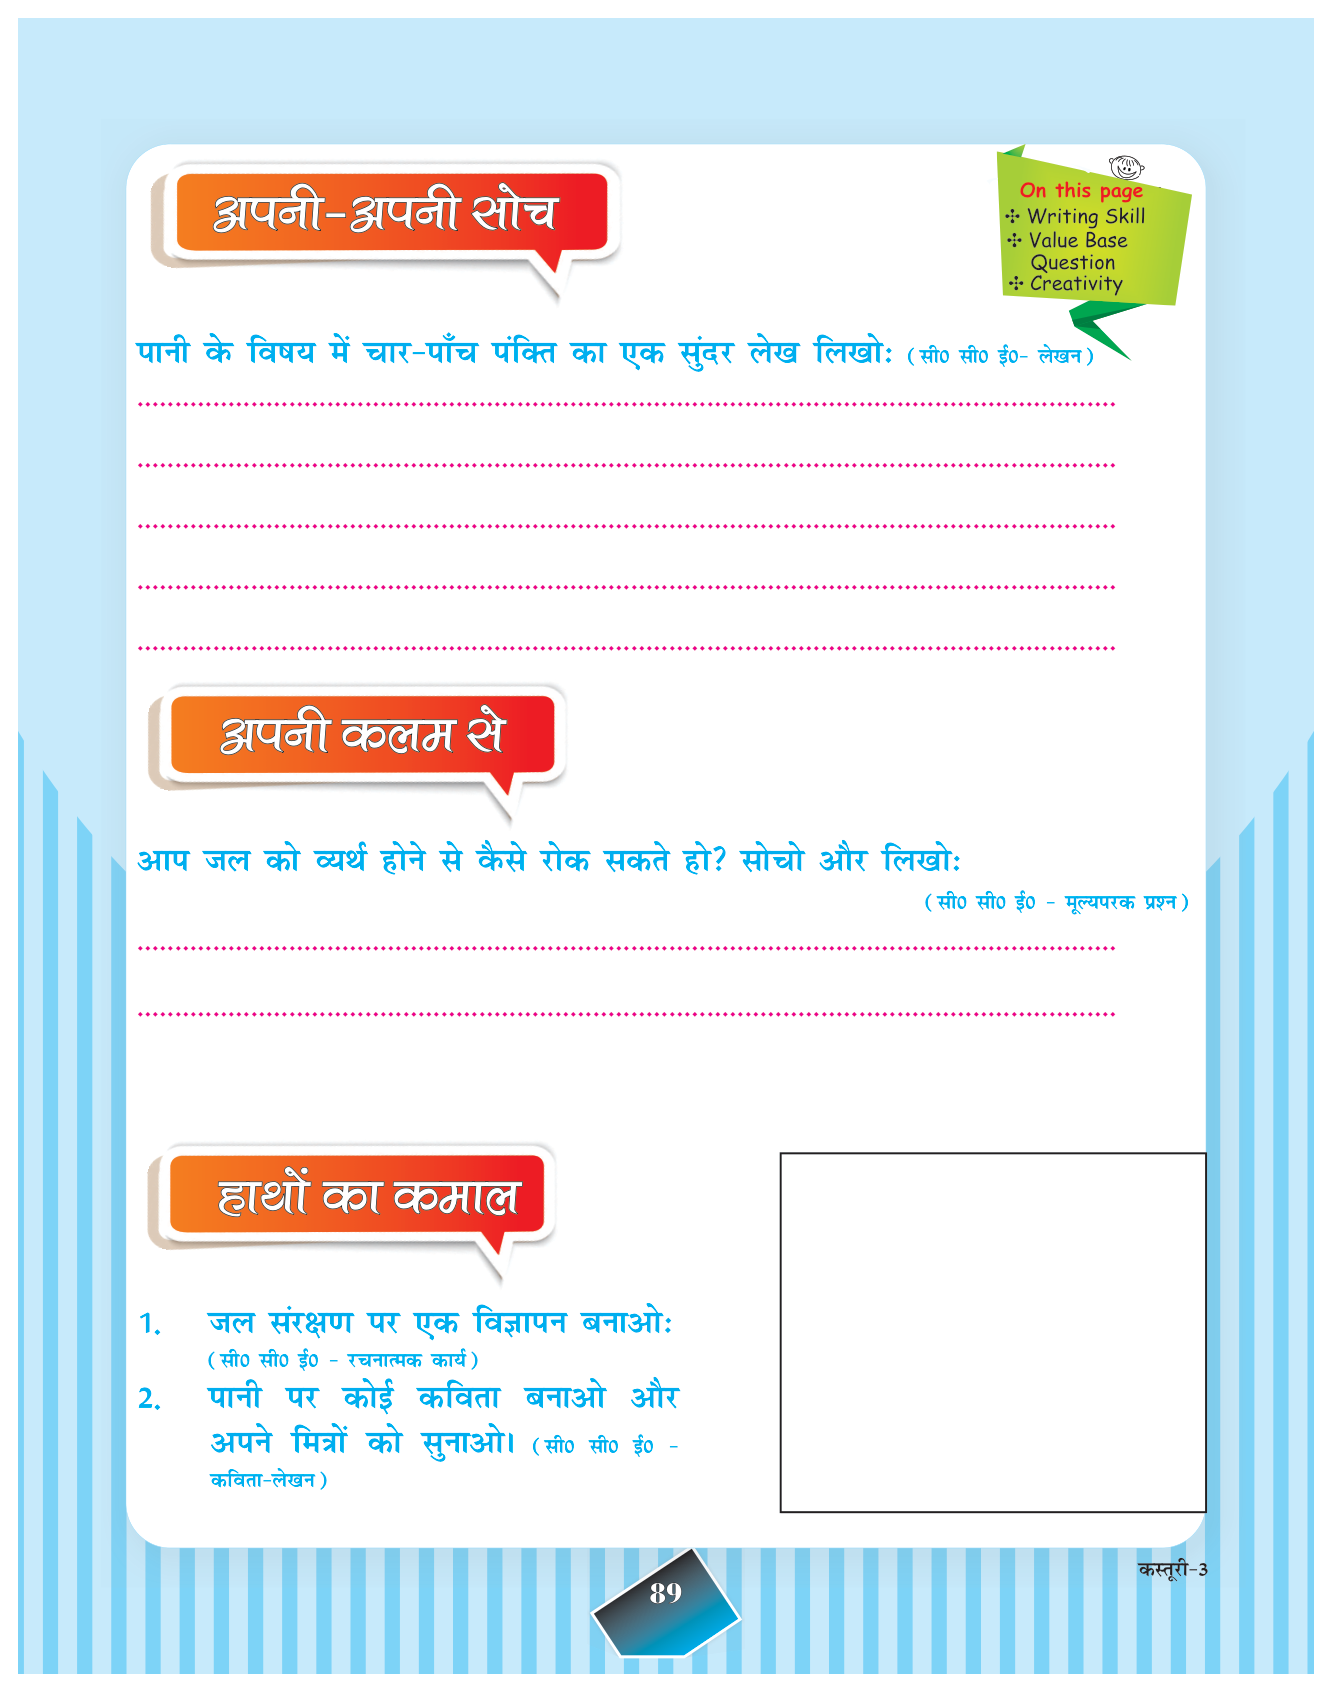 अपनी-अपनी सोच
On this page
Writing Skill
Value Base
Question
Creativity
पानी के विषय में चार-पाँच पंक्ति का एक सुंदर लेख लिखो: (सी0 सी0 ई0- लेखन)
अपनी कलम से
आप जल को व्यर्थ होने से कैसे रोक सकते हो? सोचो और लिखो:
(सी0 सी0 ई0 - मूल्यपरक प्रश्न)
हाथों का कमाल
1. जल संरक्षण पर एक विज्ञापन बनाओ:
(सी0 सी0 ई0 - रचनात्मक कार्य)
2. पानी पर कोई कविता बनाओ और
अपने मित्रों को सुनाओ। (सी0 सी0 ई0 -
कविता-लेखन)
कस्तूरी-3
89